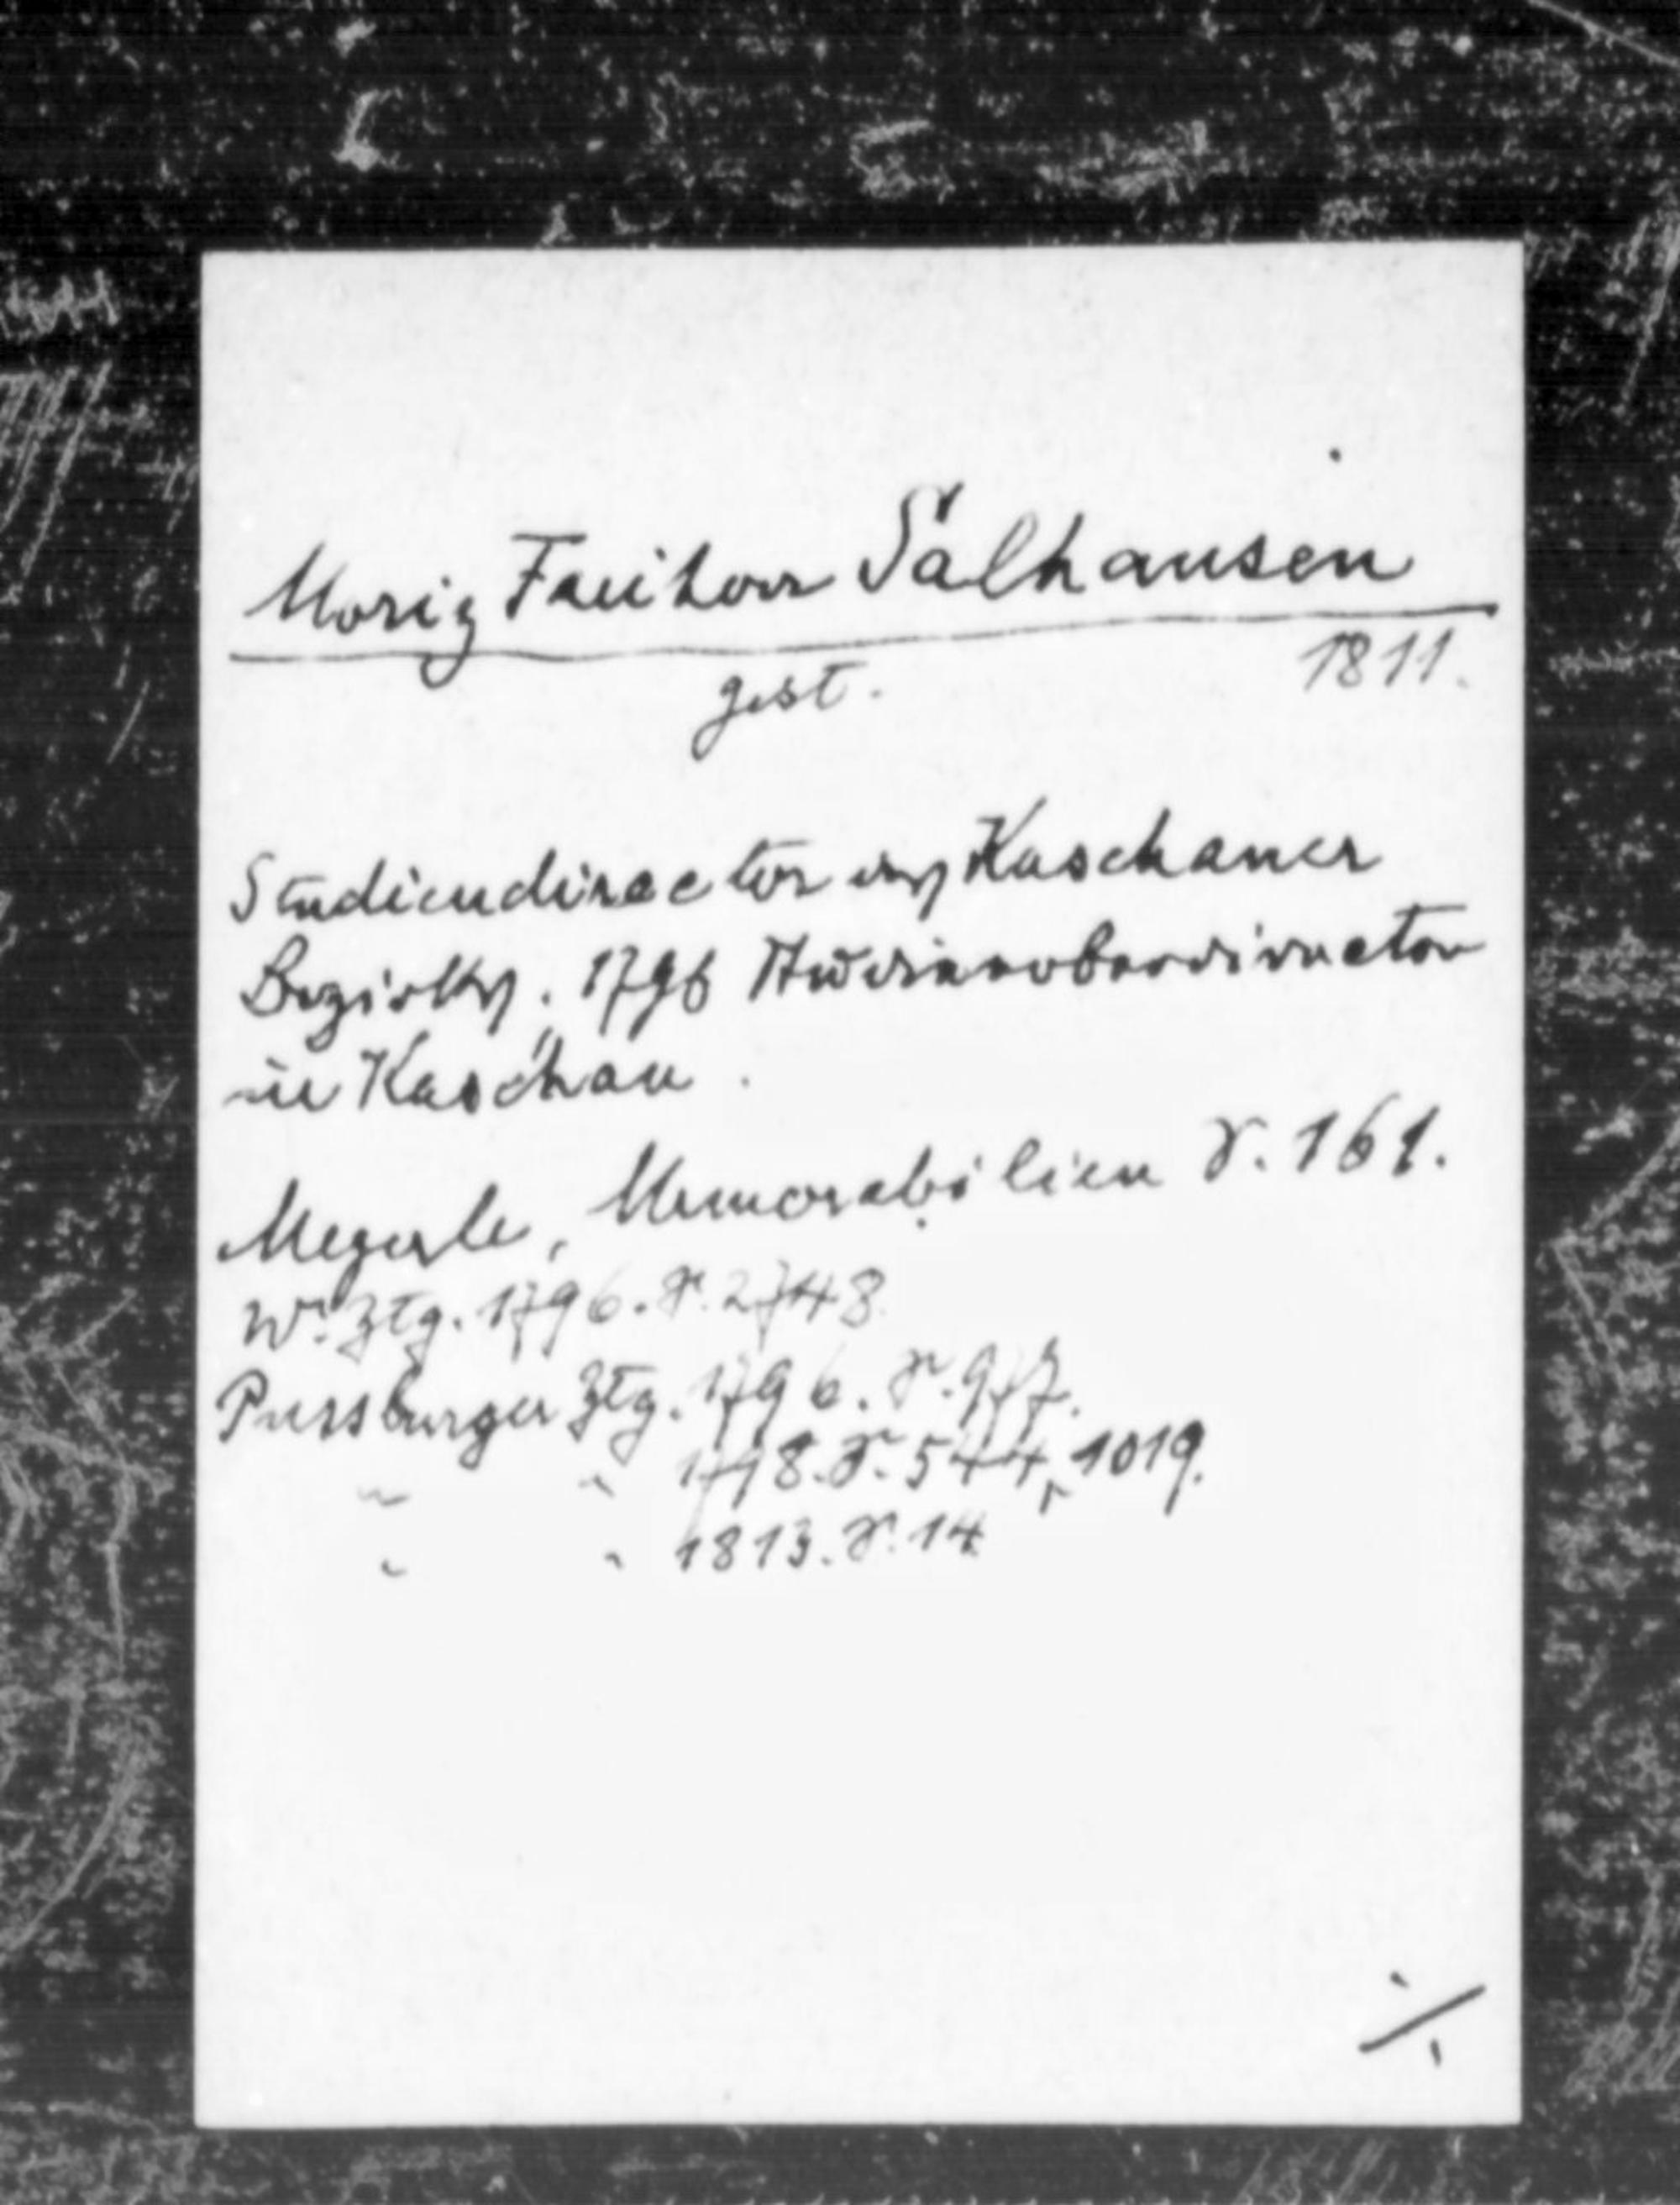 Moriz Freiherr Sálhausen
gest. 1811.
Studiendirector des Kaschauer
Bezirkes. 1796 Studienoberdirector
in Kaschau.
Megerle, Memorabilien S. 161.
Wr. Ztg. 1796. S. 2748.
Pressburger Ztg. 1796. S. 977.
" " 1798. S. 544, 1019.
" " 1813. S. 14.